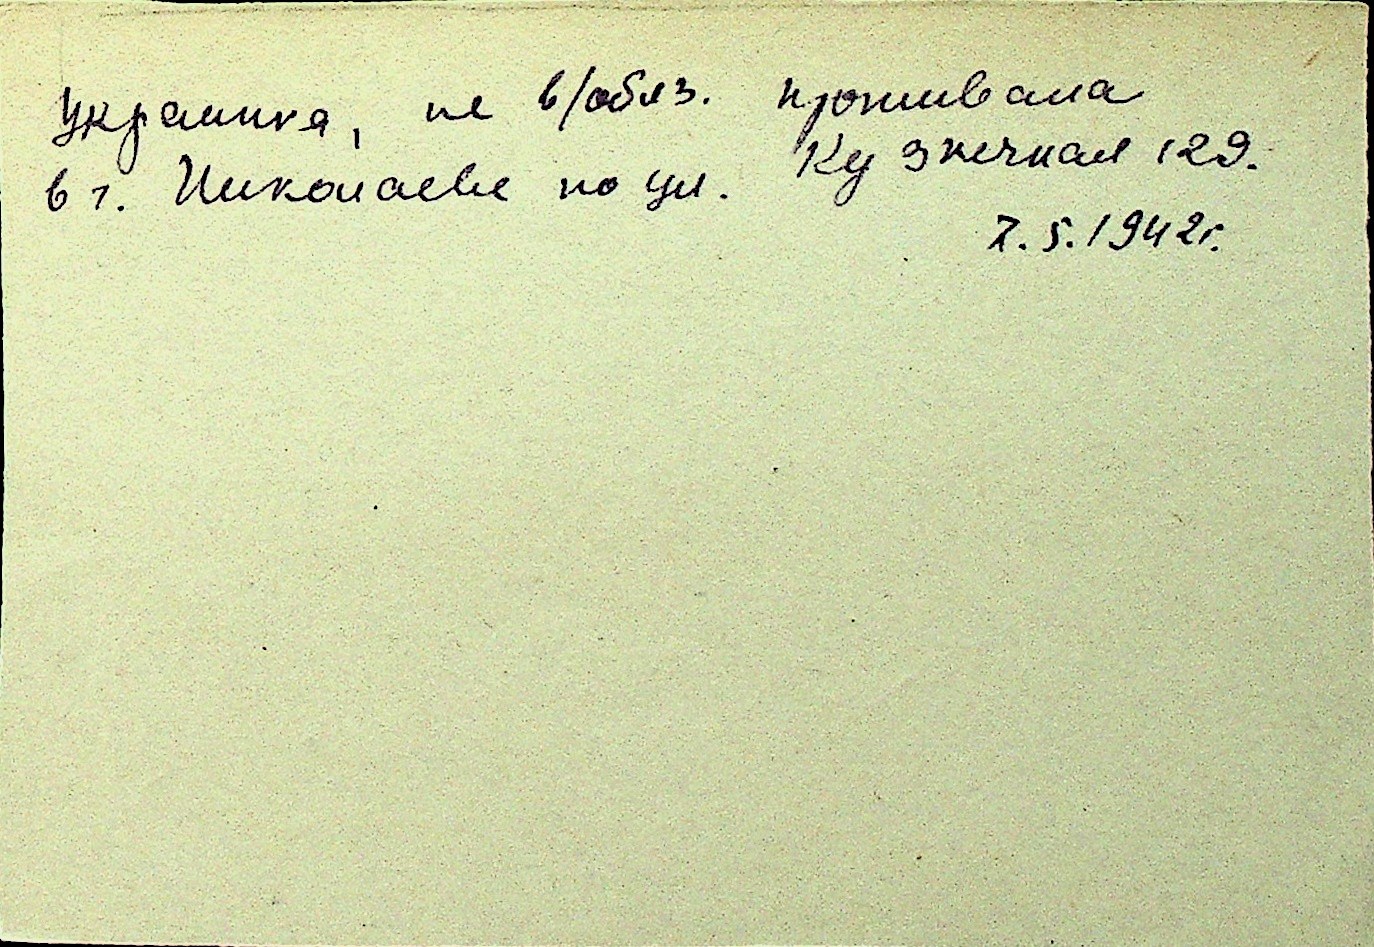 Украинка, не в/обяз. проживала
в г. Николаеве по ул. Кузнечная 129.
7.5.1942г.